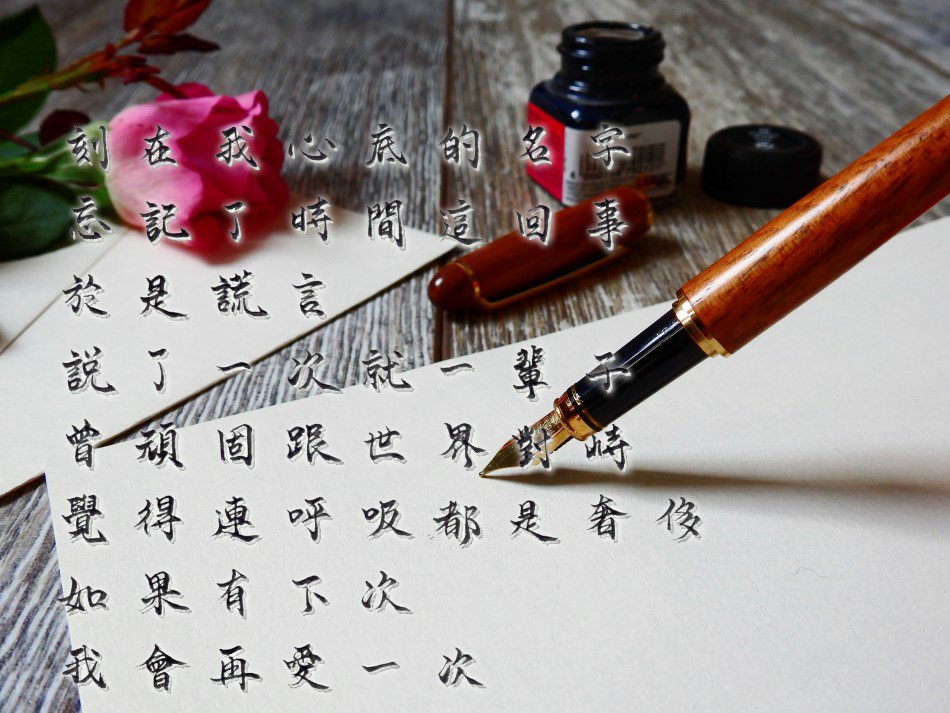 刻在我心底的名字
忘記了時間這回事
於是謊言
説了一次就一輩子
曾頑固跟世界對峙
覺得連呼吸都是奢侈
如果有下次
我會再愛一次